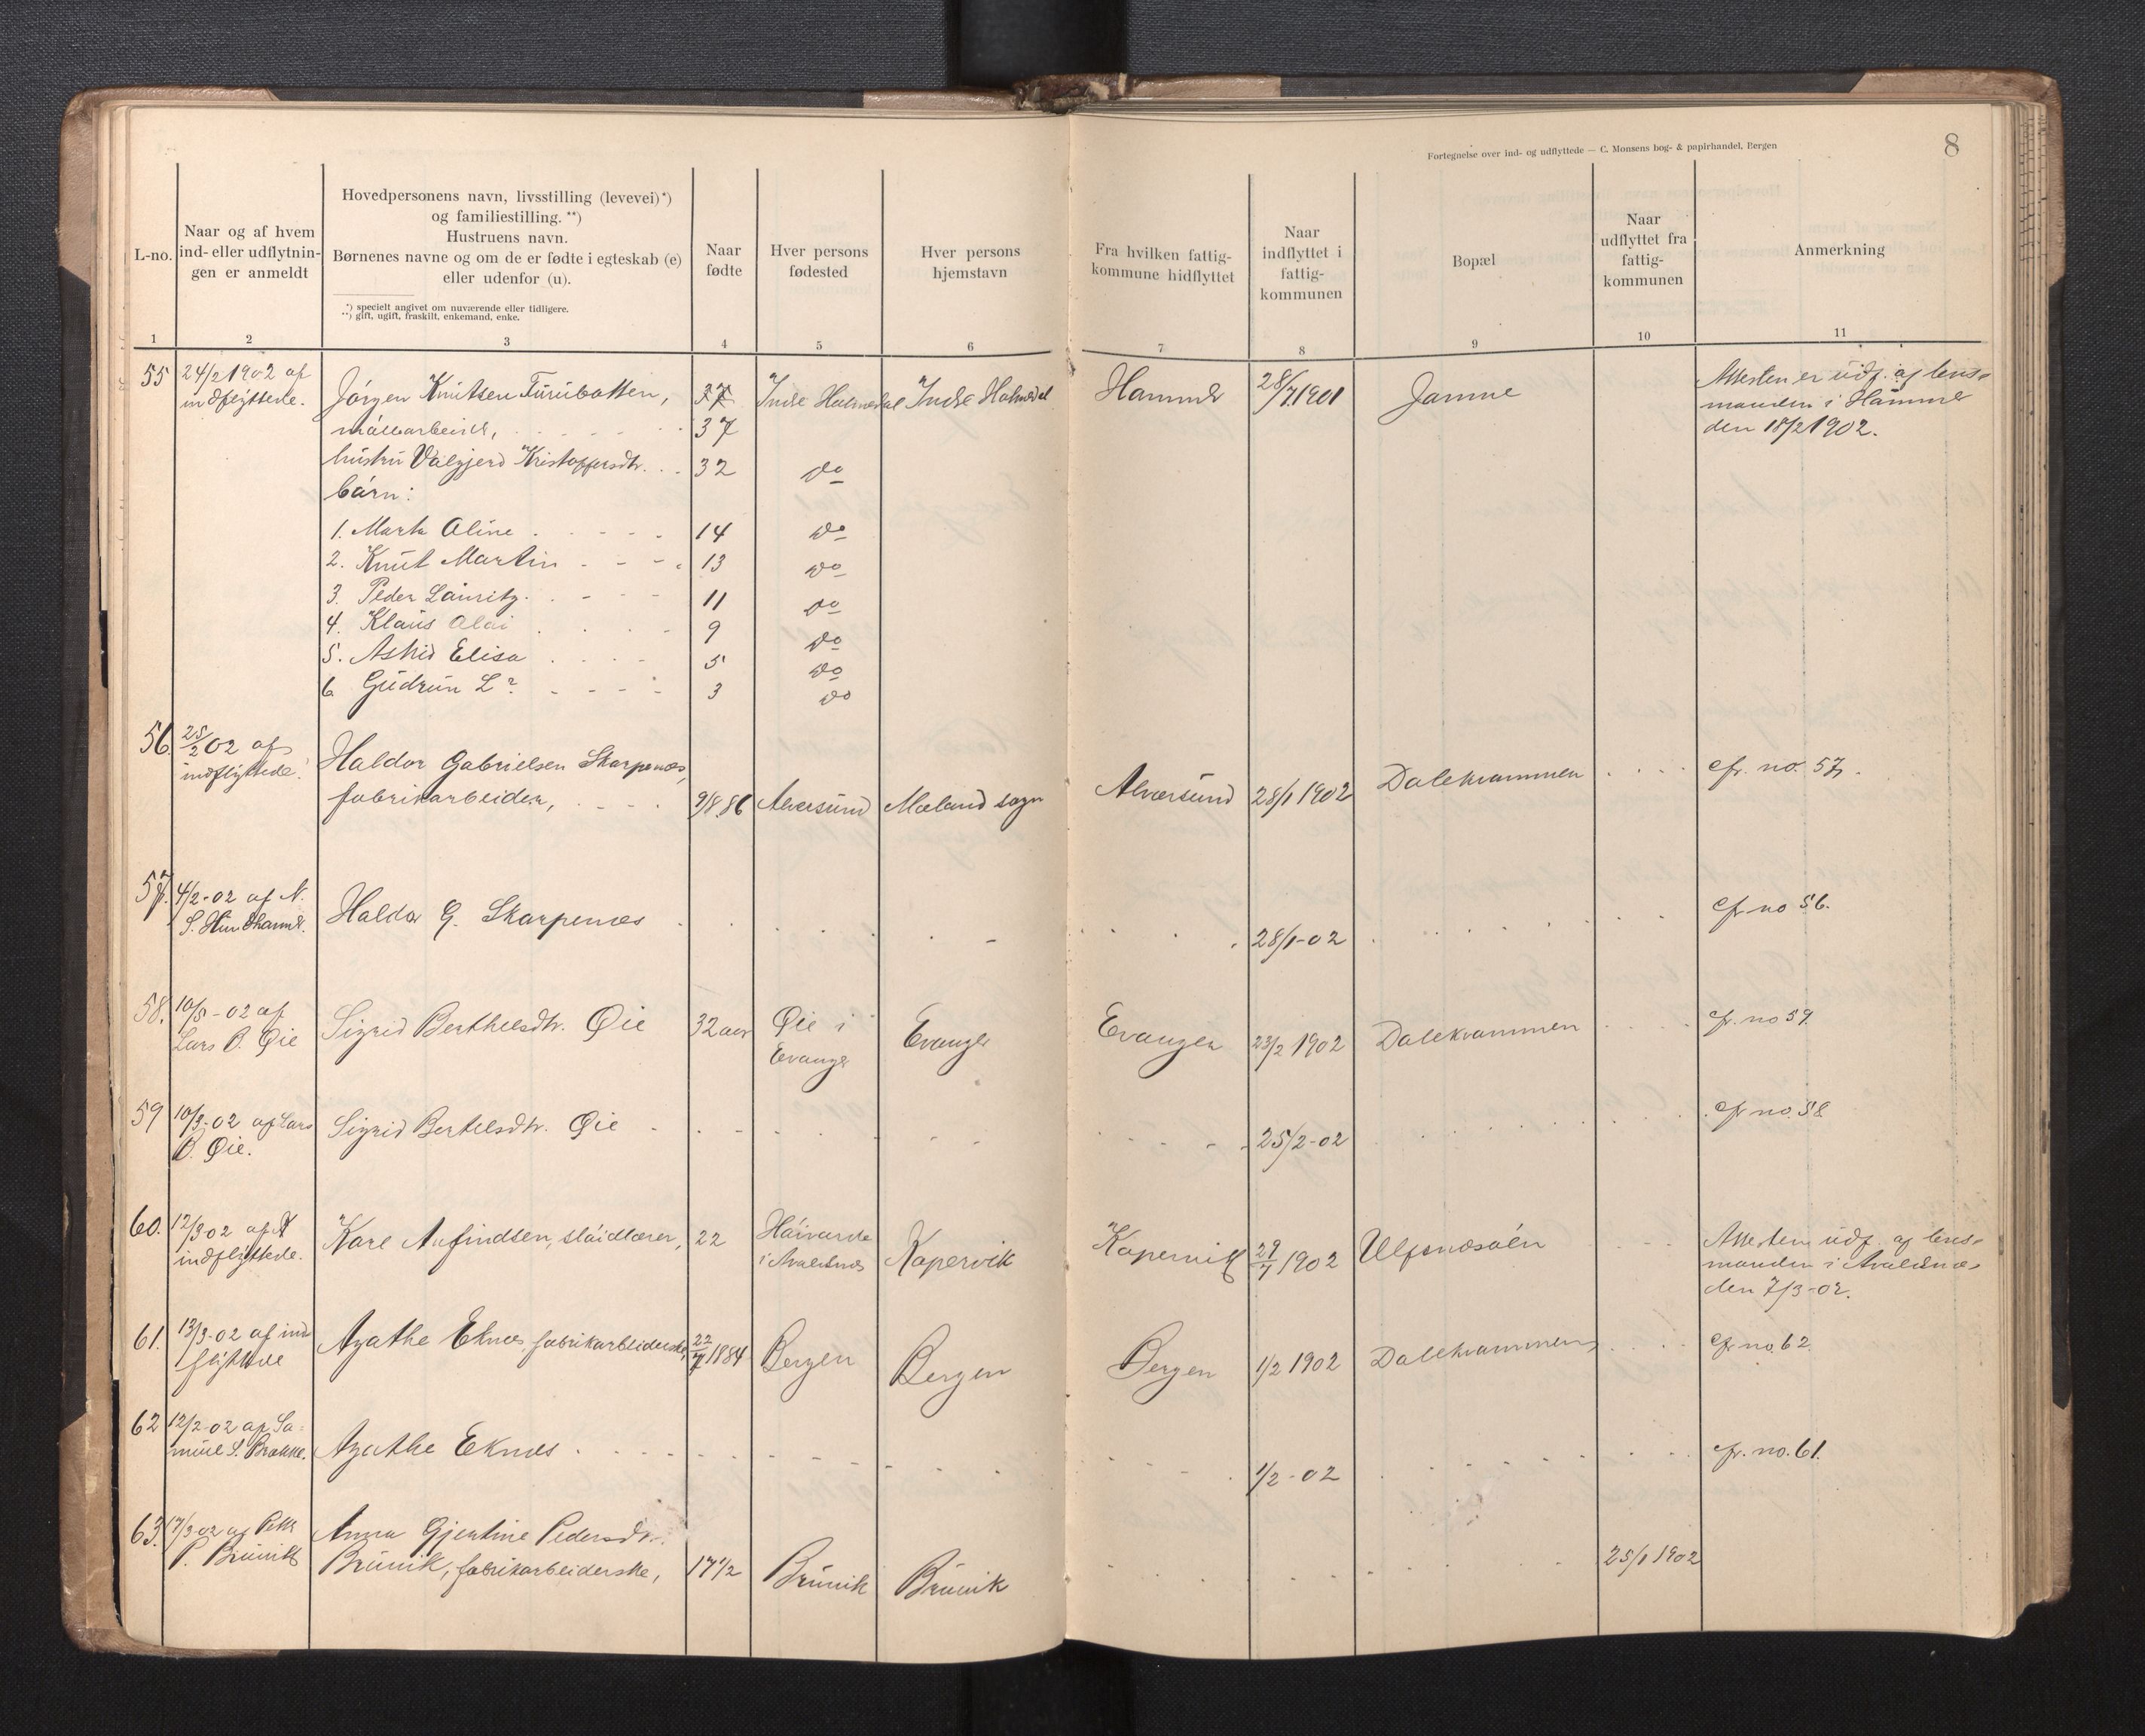 Fortegnelse over ind- og udflyttede — C. Monsens bog- & papirhandel, Bergen
8
L-no.
Naar og af hvem
ind- eller udflytnin-
gen er anmeldt
Hovedpersonens navn, livsstilling (levevei)*)
og familiestilling. **)
Hustruens navn.
Børnenes navne og om de er fødte i egteskab (e)
eller udenfor (u).
*) specielt angivet om nuværende eller tidligere.
**) gift, ugift, fraskilt, enkemand, enke.
Naar
fødte
Hver persons
fødested
Hver persons
hjemstavn
Fra hvilken fattig-
kommune hidflyttet
Naar
indflyttet i
fattig-
kommunen
Bopæl
Naar
udflyttet fra
fattig-
kommunen
Anmerkning
1 2 3 4 5 6 7 8 9 10 11
55 24/2 1902 af Jörgen Knutsen Furubotten, 37 Indre Holmedal Indre Holmedal Hammer 28/7 1901 Jamne Attesten er udf. af lens-
indflyttede. manden i Hammer
37 den 18/2 1902.
hustru Valgjerd Kristoffersdtr. 32 do
börn:
1. Marta Oline 14 do
2. Knut Martin 13 do
3. Peder Lauritz 11 do
4. Klaus Olai 9 do
5. Astrid Elisa 5 do
6. Gudrun L? 3 do
56 25/2 02 af Haldor Gabrielsen Skarpenæs, Dalekvammen cfr. no. 57.
indflyttede. fabrikarbeider, 9/8 86 Alversund Mæland sogn Alversund 28/1 1902
57. 4/2-02 af N. Haldor G. Skarpenæs 28/1-02 cfr no 56.
58. 10/3-02 af Sigrid Berthelsdtr. Øie 32 aar Øie i Evanger Evanger 23/2 1902 Dalekvammen cfr. no 59.
Lars B. Øie Evanger
59 10/3-02 af Lars Sigrid Bertelsdtr. Øie 25/2-02 cfr no. 58
B. Øie.
60. 12/3 02 af Kare Arfindsen, slöidlærer, 22 Kopervik Kopervik 1902 Ulfsnesöen Attesten udf. af lens-
indflyttede. i Avaldsnes manden i Avaldsnes
den 7/3-02.
61. 13/3-02 af ind Agathe Eknes, fabrikarbeiderske, 22/7 1884 Bergen Bergen Bergen 1/2 1902 Dalekvammen cfr no. 62.
flyttede
62 12/2-02 af Sa- Agathe Eknes 1/2-02 cfr. no. 61.
muel S. Brakke.
63. 17/3-02 af Peder Anna Gjertine Pedersdtr.
P. Bruvik Bruvik, fabrikarbeiderske, 17 1/2 Bruvik Bruvik 25/1 1902